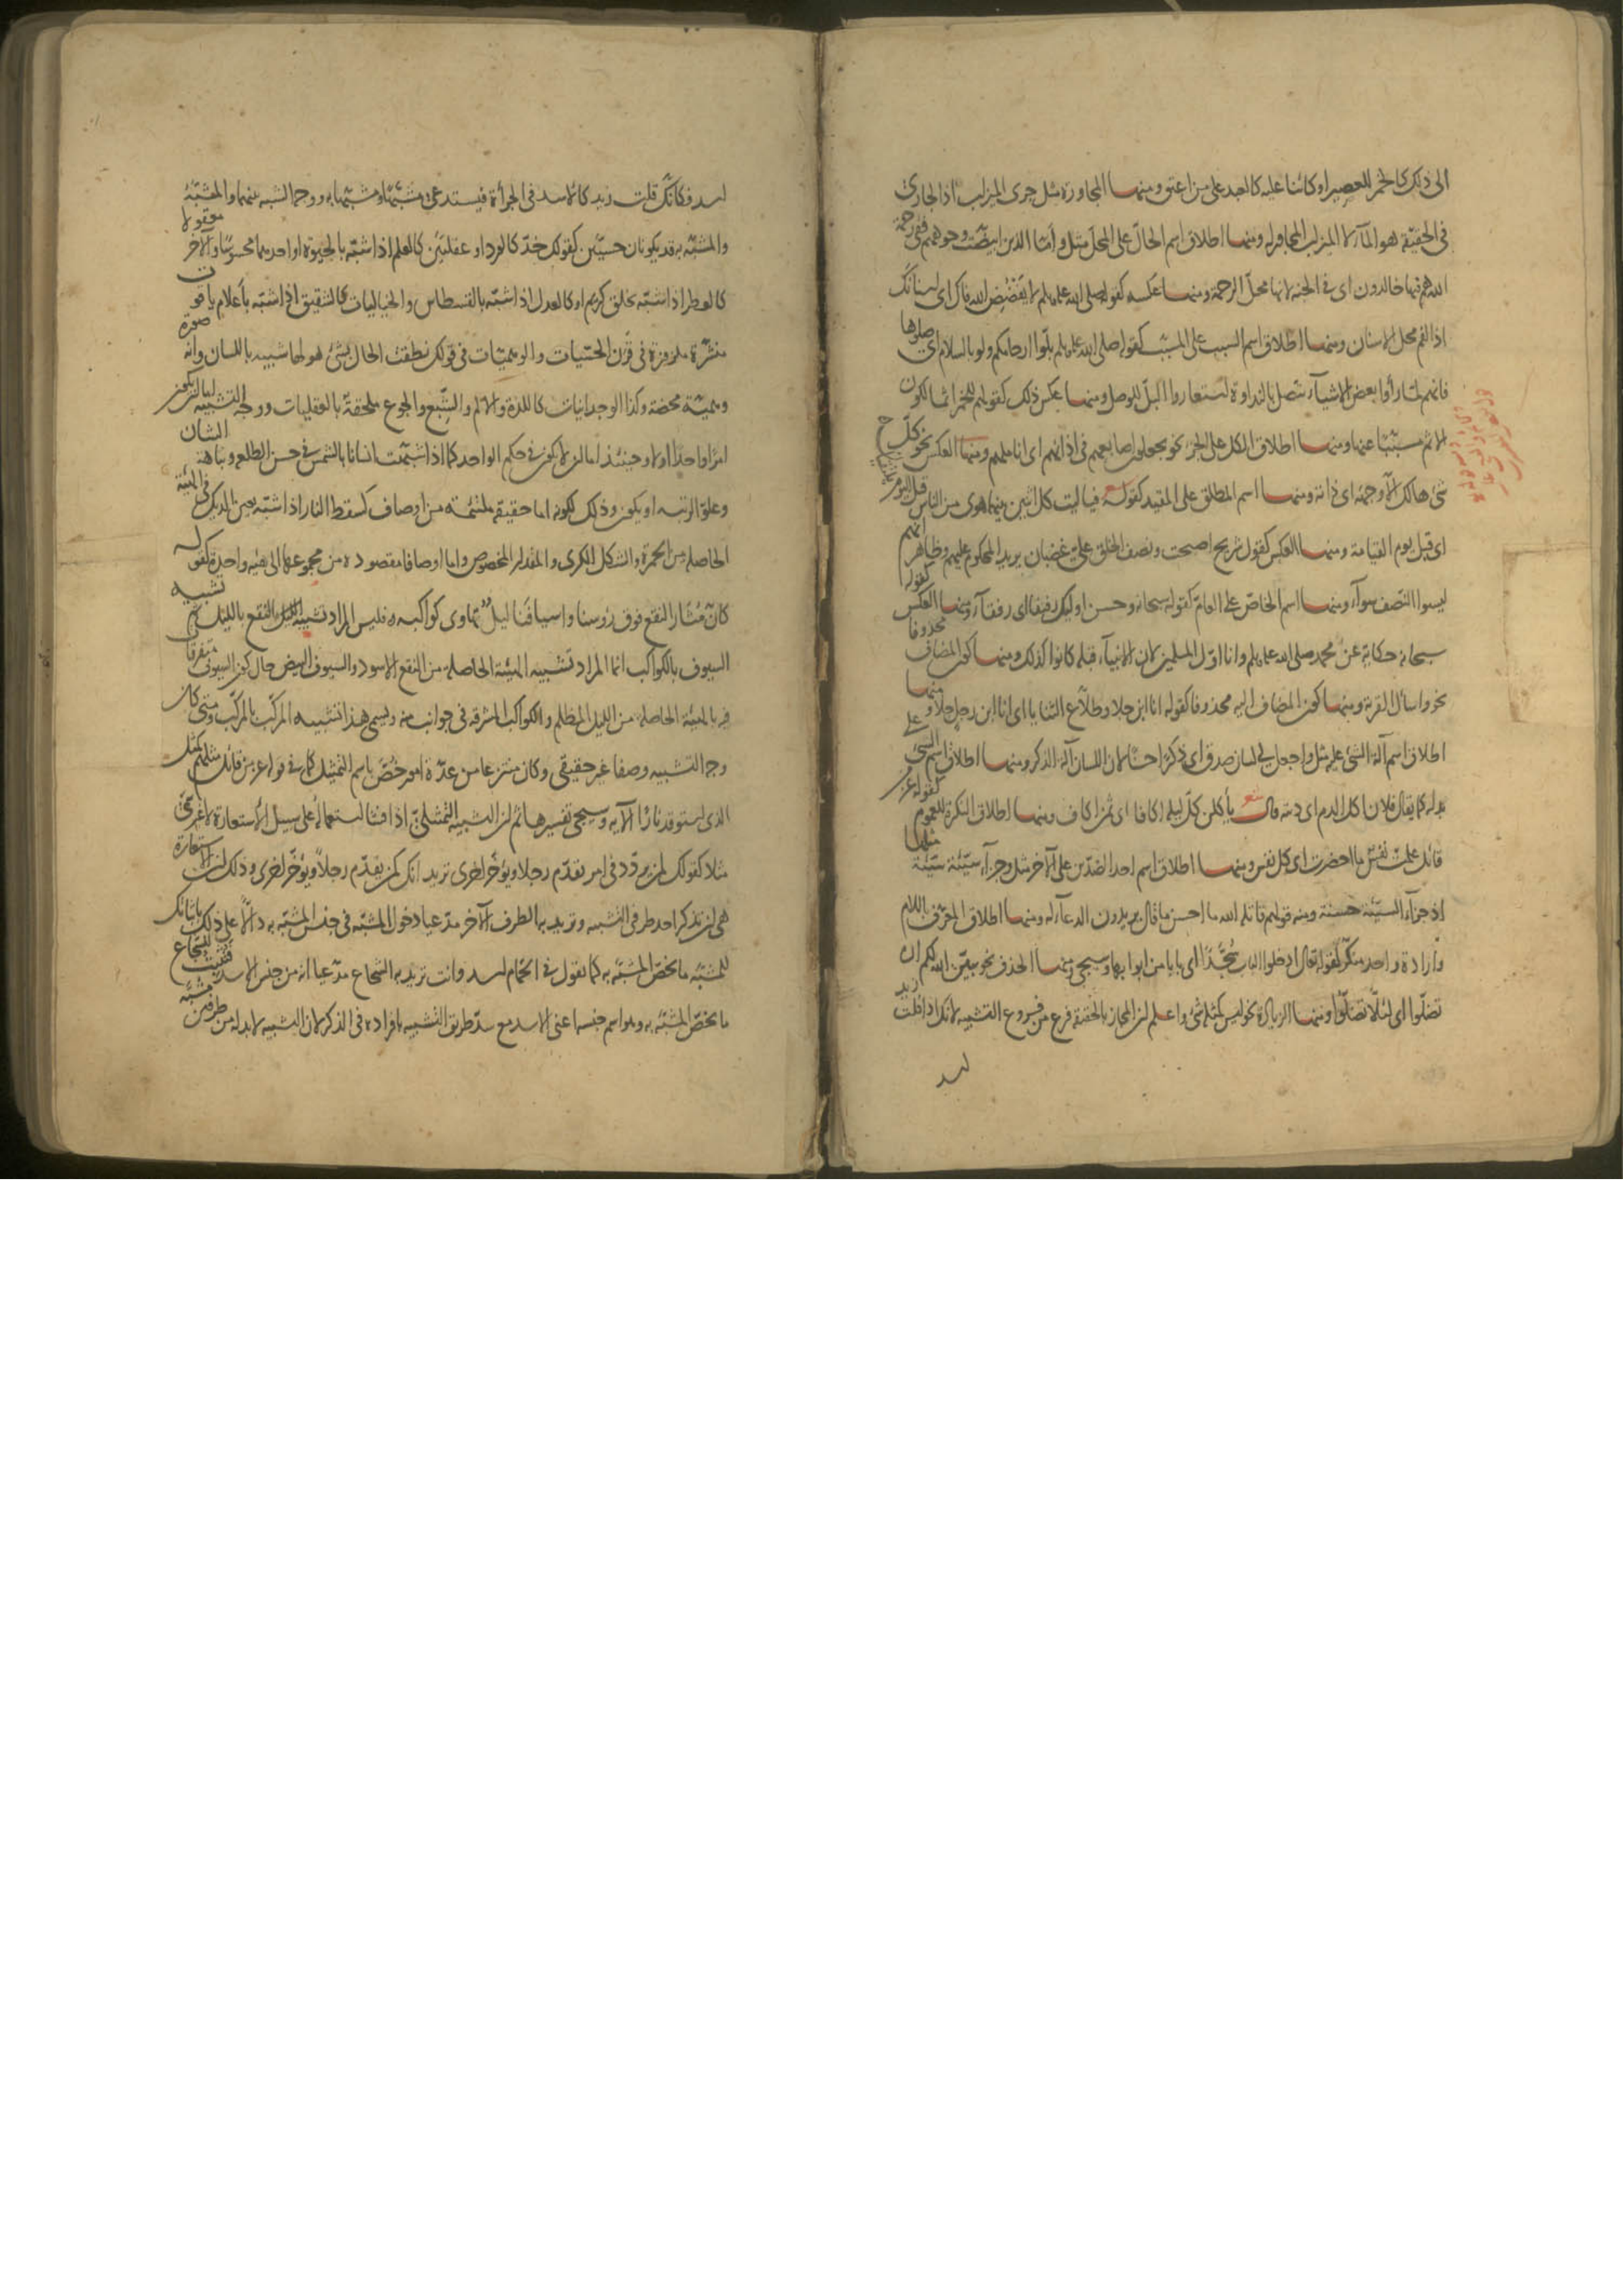 الى ذلك كالخمر للعصير او كائنا عليه كالعبد على من اعتق ومنها المجاورة مثل جرى الميزاب اذ الجارى
فى الحقيقة هو المآء لا الميزاب المجاور له ومنها اطلاق اسم الحالّ على المحلّ مثل وامّا الذين ابيضّت وجوههم ففى رحمة
الله هم فيها خالدون اى فى الجنة لانها محلّ الرحمة ومنها عكسه كقوله صلى الله عليه وسلم لا يَفْضُضِ الله فاك اى اسنانك
اذ الفم محل الاسنان ومنها اطلاق اسم السبب على المسبّب كقوله صلى الله عليه وسلم بلّوا ارحامكم ولو بالسلام اى صلوها
فانهم لمّا رأوا بعض الاشيآء تتصل بالنداوة استعاروا البلّ للوصل ومنها عكس ذلك كقولهم للخمر اثما لكون
الاثم مسبّبا عنها ومنها اطلاق الكل على الجزء نحو يجعلون اصابعهم فى اذانهم اى اناملهم ومنها العكس نحو كلّ
شئ هالك الّا وجهه اى ذاته ومنها اسم المطلق على المقيد كقوله فيا ليت كل اثنين بينهما هوى من الناس قبل اليوم
اى قبل يوم القيامة ومنها العكس كقول شريح اصبحت ونصف الخلق علىّ غضبان يريد المحكوم عليهم وظاهر انهم
ليسوا النصف سوآء ومنها اسم الخاصّ على العامّ كقوله سبحانه وحسن اولئك رفيقا اى رفقآء ومنها العكس كقوله
سبحانه حكاية عن محمد صلى الله عليه وسلم وانا اوّل المسلمين لان الانبيآء قبله كانوا كذلك ومنها كون المضاف محذوفا
نحو واسأل القرية ومنها كون المضاف اليه محذوفا كقوله انا ابن جلا وطلّاع الثنايا اى انا ابن رجل جلا ومنها
اطلاق اسم آلة الشئ عليه مثل واجعل لى لسان صدق اى ذكرا حسنا لان اللسان آلة الذكر ومنها اطلاق اسم الشئ على
بدله كما يقال فلان اكل الدم اى ديته قال شعر يأكلن كلّ ليلة اكافا اى ثمن اكاف ومنها اطلاق النكرة للعموم كقوله عز من
قائل علمت نفسٌ ما احضرت اى كل نفس ومنها اطلاق اسم احد الضدّين على الآخر مثل وجزآء سيّئة سيّئة مثلها
اذ جزآء السيّئة حسنة ومنه قولهم قاتله الله ما احسن ما قال يريدون الدعآء له ومنها اطلاق المعرّف باللام
وارادة واحد منكّر كقوله تعالى ادخلوا الباب سُجَّدًا اى بابا من ابوابها وسيجئ ومنها الحذف نحو يبيّن الله لكم ان
تضلّوا اى لئلّا تضلّوا ومنها الزيادة نحو ليس كمثله شئ واعلم ان المجاز بالحقيقة فرع من فروع التشبيه لانك اذا قلت زيد
اسد
اسد فكانّك قلت زيد كالاسد فى الجرأة فيستدعى مشبّها ومشبّها به ووجه الشبه بينهما والمشبّه
والمشبّه به قد يكونان حسيّين كقولك خدّ كالورد او عقليّين كالعلم اذا شبّه بالحيوة او احدهما محسوسا والآخر معقولا
كالعطر اذا شبّه بخلق كريم او كالعدل اذا شبّه بالقسطاس والخياليات كالشقيق اذا شبّه بأعلام ياقوت
منشّرة ملزوزة فى قرن الحسّيات والوهميّات فى قولك نطقت الحال بشئ هو لها شبيه باللسان وانه صورة
وهميّة محضة وكذا الوجدانيات كاللذة والالم والشِبَع والجوع ملحقة بالعقليات ووجه التشبيه اما ان يكون
امرا واحدا اولا وحينئذ اما ان لا يكون فى حكم الواحد كما اذا شبّهت انسانا بالشمس فى حسن الطلعة ونباهة الشان
وعلوّ الرتبة او يكون وذلك لكونه اما حقيقة ملتئمة من اوصاف كسقط النار اذا شبّه بعين الديك فى الهيئة
الحاصلة من الحمرة والشكل الكرى والمقدار المخصوص واما اوصافا مقصودة من مجموعها الى هيئة واحدة كقوله
كانّ مُثَارَ النقع فوق رؤسنا واسيافَنَا ليلٌ تهاوى كواكبه فليس المراد تشبيه النقع بالليل ثم تشبيه
السيوف بالكواكب انما المراد تشبيه الهيئة الحاصلة من النقع الاسود والسيوف البيض حال كون السيوف متفرقا
فيه بالهيئة الحاصلة من الليل المظلم والكواكب المشرقة فى جوانب منه ويسمى هذا تشبيه المركّب بالمركّب ومتى كان
وجه التشبيه وصفا غير حقيقى وكان منتزعا من عدّة امور خُصَّ باسم التمثيل كما فى قوله عز من قائل مثلهم كمثل
الذى استوقد نارا الآية وسيجئ تفسيرها ثم ان التشبيه التمثيلىّ اذا فشا استعماله على سبيل الاستعارة لا غير سمّى
مثلا كقولك لمن يردّد فى امر تقدّم رجلا وتؤخّر اخرى تريد انك كمن يقدّم رجلاً ويؤخّر اخرى وذلك ان الاستعارة
هى ان تذكر احد طرفى التشبيه وتريد به الطرف الآخر مدّعيا دخول المشبّه فى جنس المشبّه به دالّاً على ذلك باثباتك
للمشبّه ما يخصّ المشبّه به كما تقول فى الحمّام اسد وانت تريد به الشجاع مدّعيا انه من جنس الاسد فتثبت للشجاع
ما يخصّ المشبّه به وهو اسم جنسه اعنى الاسد مع سدّ طريق التشبيه بافراده فى الذكر لان التشبيه لا بدّ له من طرفين مشبّه